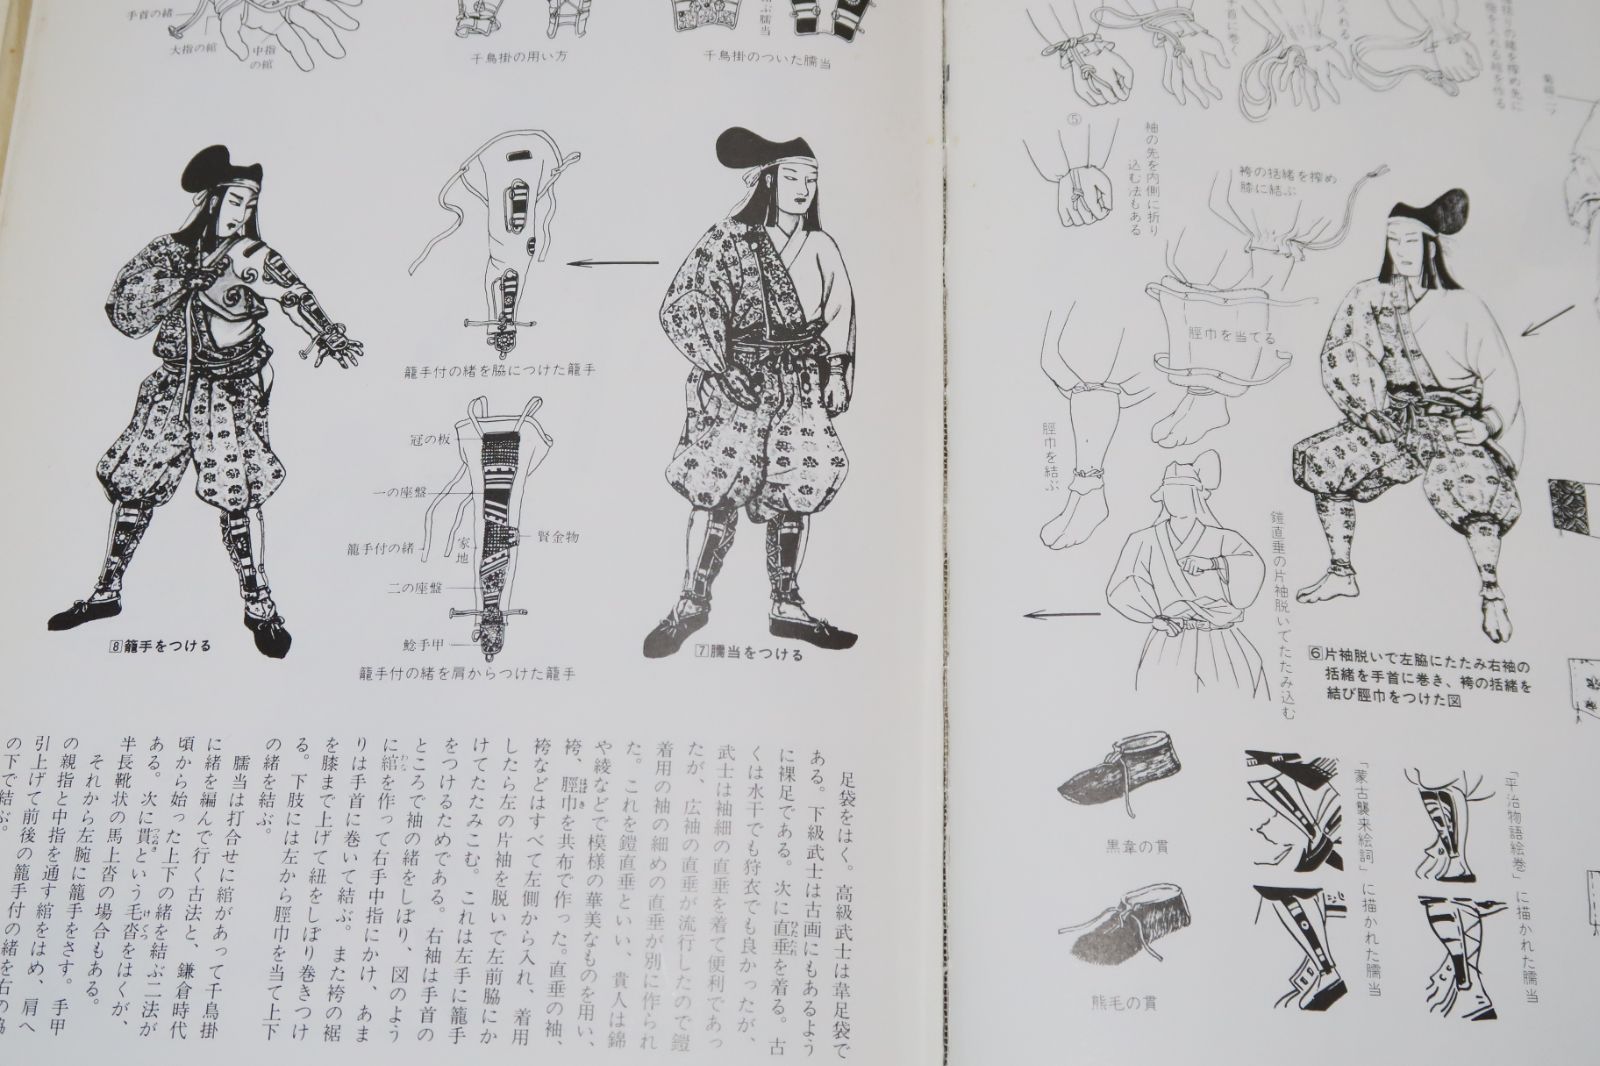 手首の緒
大指の綰
中指
の綰
千鳥掛の用い方
千鳥掛のついた臑当
手首に巻く
入れる
括りの緒を搾め先に
指を入れる綰を作る
菊綴二ツ
⑤
袖の先を内側に折り
込む法もある
袴の括緒を搾め
膝に結ぶ
脛巾を当てる
脛巾を結ぶ
鎧直垂の片袖脱いでたたみ込む
⑥片袖脱いで左脇にたたみ右袖の
括緒を手首に巻き、袴の括緒を
結び脛巾をつけた図
籠手付の緒を脇につけた籠手
冠の板
一の座盤
籠手付の緒
家地
賢金物
二の座盤
鯰手甲
籠手付の緒を肩からつけた籠手
⑦臑当をつける
⑧籠手をつける
黒韋の貫
熊毛の貫
「平治物語絵巻」に描かれた臑当
「蒙古襲来絵詞」に描かれた臑当
足袋をはく。高級武士は韋足袋で
ある。下級武士は古画にもあるよう
に裸足である。次に直垂を着る。古
くは水干でも狩衣でも良かったが、
武士は袖細の直垂を着て便利であっ
たが、広袖の直垂が流行したので鎧
着用の袖の細めの直垂が別に作られ
た。これを鎧直垂といい、貴人は錦
や綾などで模様の華美なものを用い、
袴、脛巾を共布で作った。直垂の袖、
袴などはすべて左側から入れ、着用
したら左の片袖を脱いで左前脇にか
けてたたみこむ。これは左手に籠手
をつけるためである。右袖は手首の
ところで袖の緒をしぼり、図のよう
に綰を作って右手中指にかけ、あま
りは手首に巻いて結ぶ。また袴の裾
を膝まで上げて紐をしぼり巻きつけ
る。下肢には左から脛巾を当て上下
の緒を結ぶ。
臑当は打合せに綰があって千鳥掛
に緒を編んで行く古法と、鎌倉時代
頃から始った上下の緒を結ぶ二法が
ある。次に貫という毛沓をはくが、
半長靴状の馬上沓の場合もある。
それから左腕に籠手をさす。手甲
の親指と中指を通す綰をはめ、肩へ
引上げて前後の籠手付の緒を右の脇
の下で結ぶ。